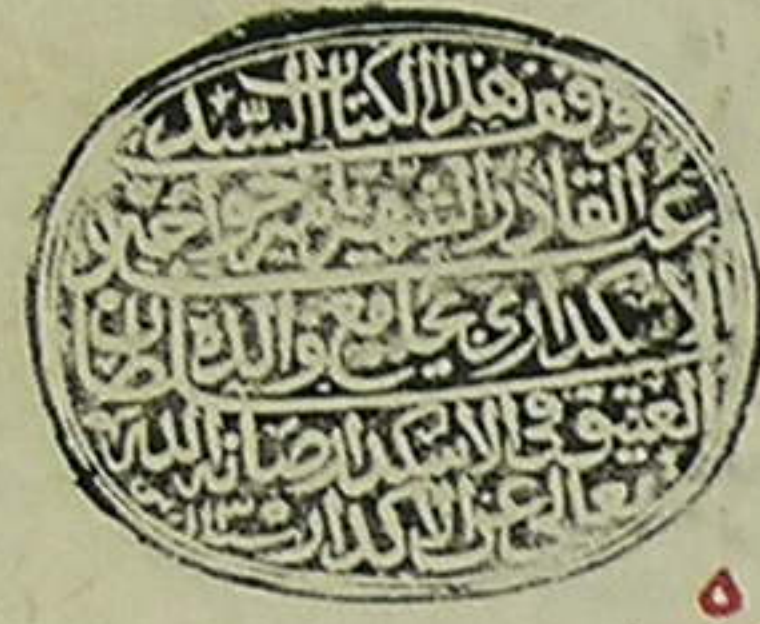 وقف هذا الكتاب السيد
عبد القادر الشهير بامير خواجه
الاسكداری بجامع والدة سلطان
العتيق فی الاسكدار صانه الله
تعالى عن الاكدار سنة
٥